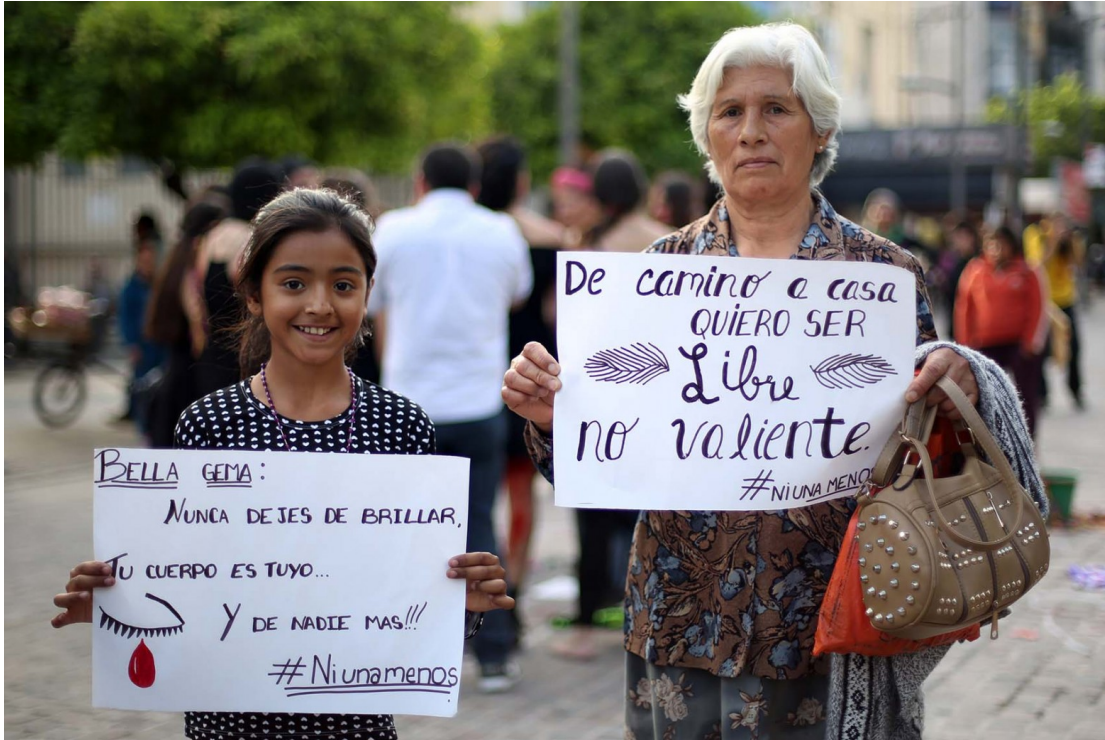 BELLA GEMA:
NUNCA DEJES DE BRILLAR,
TU CUERPO ES TUYO...
Y DE NADIE MAS!!!
#Niunamenos
De camino a casa
QUIERO SER
Libre
no valiente.
#NIUNAMENOS